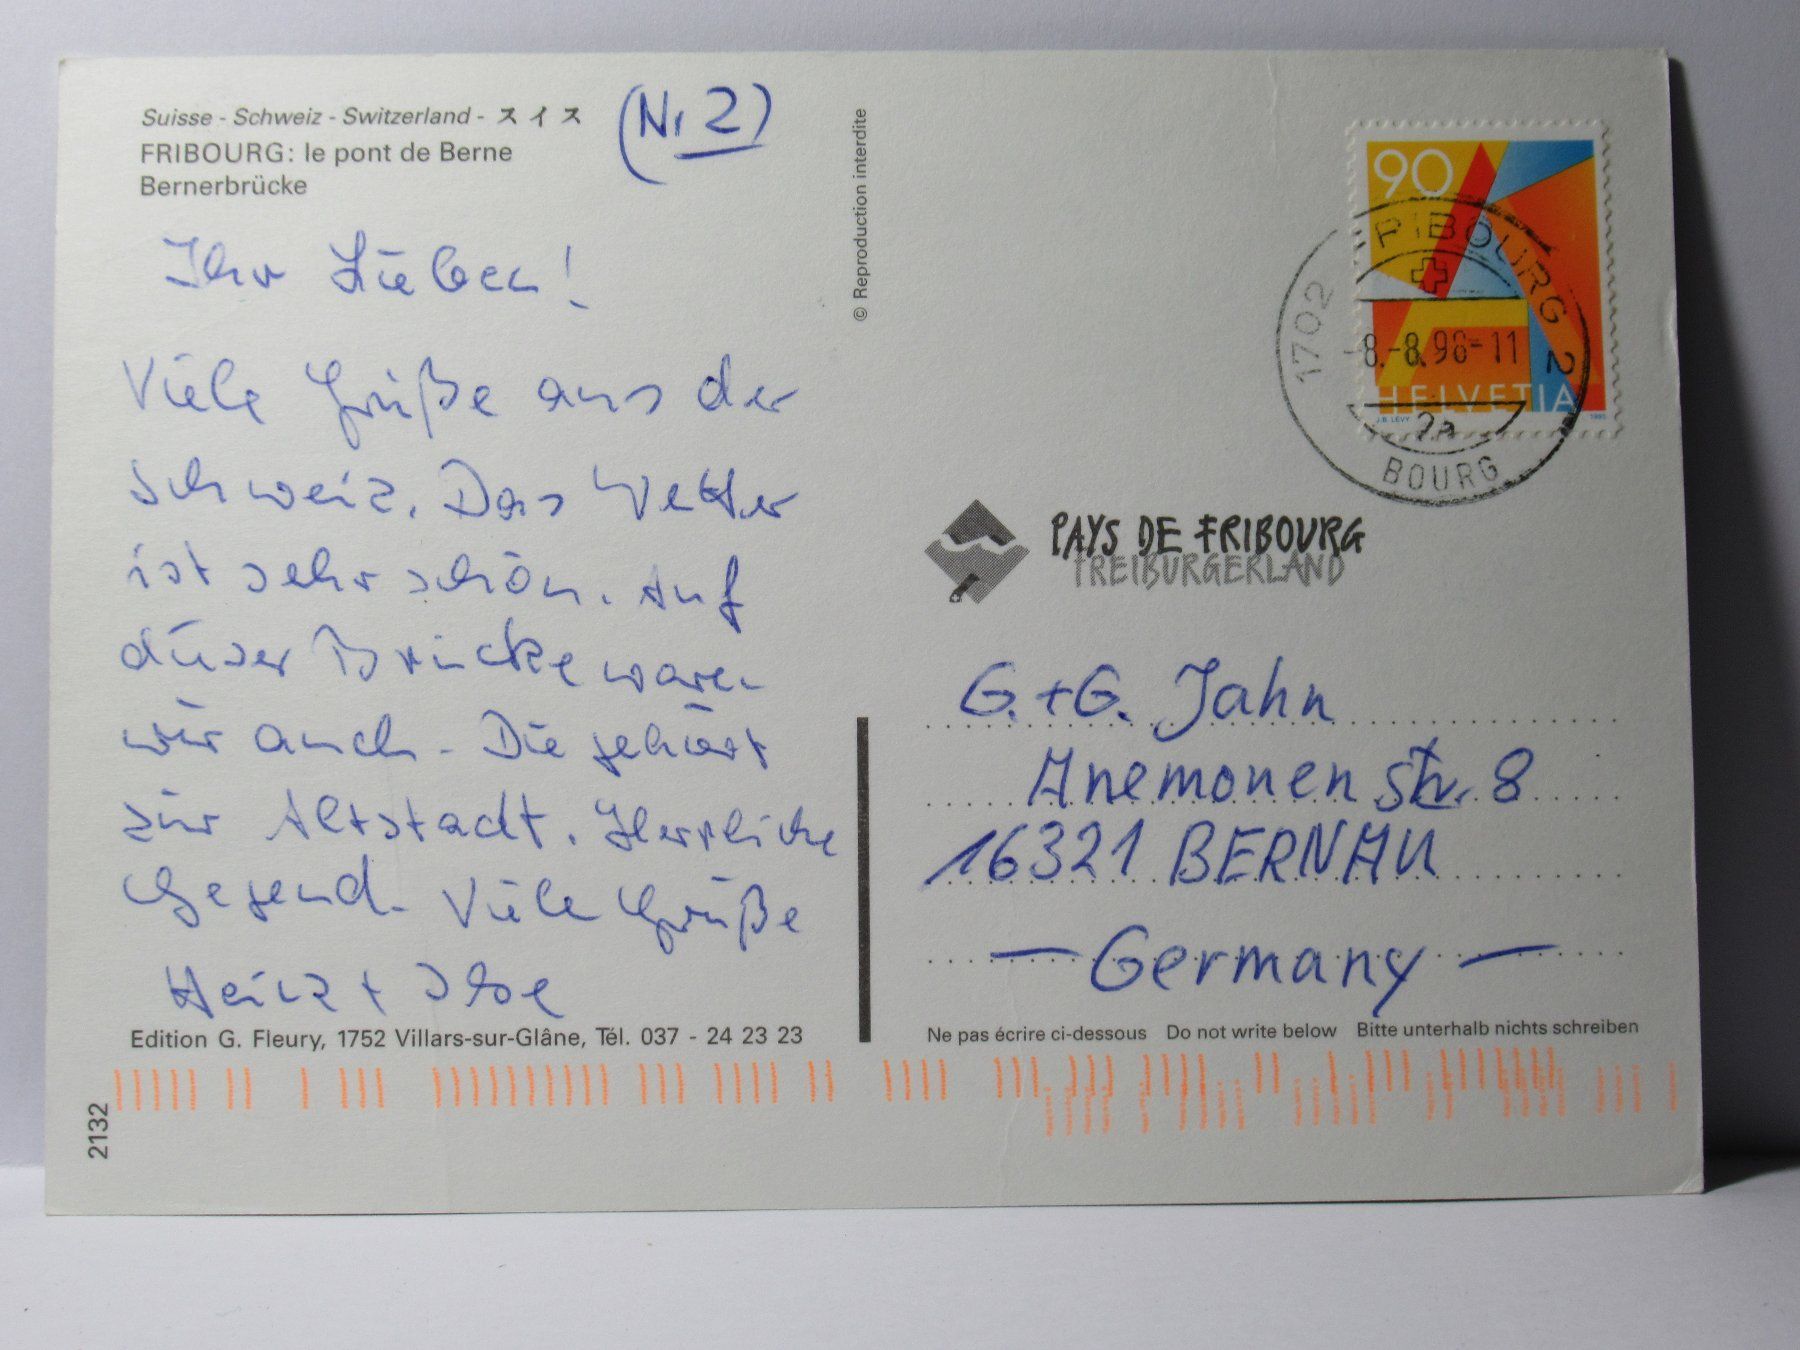 Suisse - Schweiz - Switzerland - スイス
FRIBOURG: le pont de Berne
Bernerbrücke
(Nr 2)
Ihr Lieben!
Viele Grüße aus der
Schweiz. Das Wetter
ist sehr schön. Auf
dieser Brücke waren
wir auch - Die gehört
zur Altstadt. Herrliche
Gegend. Viele Grüße
Heinz + Ilse
Edition G. Fleury, 1752 Villars-sur-Glâne, Tél. 037 - 24 23 23
2132
© Reproduction interdite
90
HELVETIA
J.B. LEVY 1995
1702 FRIBOURG 2
-8.-8.98-11
2a
BOURG
PAYS DE FRIBOURG
FREIBURGERLAND
G.+G. Jahn
Anemonenstr. 8
16321 BERNAU
— Germany —
Ne pas écrire ci-dessous Do not write below Bitte unterhalb nichts schreiben